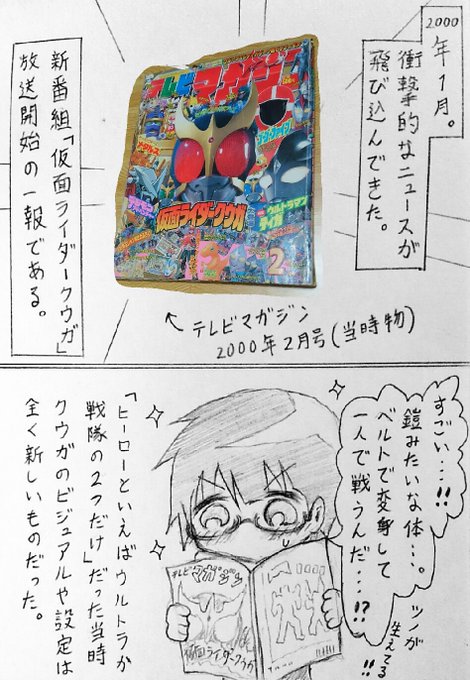 2000年1月。
衝撃的なニュースが
飛び込んできた。
テレビマガジン
仮面ライダークウガ
ウルトラマン
ティガ
2
新番組「仮面ライダークウガ」
放送開始の一報である。
テレビマガジン
2000年2月号(当時物)
すごい…!!
鎧みたいな体…。
ベルトで変身して
一人で戦うんだ…!?
ツノが
生えてる!!
テレビマガジン
仮面ライダークウガ
「ヒーローといえばウルトラか
戦隊の2つだけ」だった当時
クウガのビジュアルや設定は
全く新しいものだった。